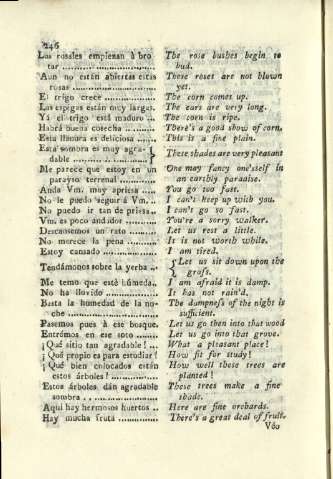 246
Los rosales empiezan á bro-
tar ..................
Aun no están abiertas estas
rosas ..................
El trigo crece ..................
Las espigas están muy largas.
Yá el trigo está maduro ...
Habrá buena cosecha ............
Esta llanura es deliciosa .......
Esta sombra es muy agra-
dable ..................
Me parece que estoy en un
parayso terrenal ............
Anda Vm. muy apriesa .....
No le puedo segur á Vm. ..
No puedo ir tan de priesa..
Vm. es poco andador .........
Descansemos un rato .........
No merece la pena ............
Estoy cansado ..................
Tendámonos sobre la yerba ..
Me temo que esté húmeda..
No ha llovido ..................
Basta la humedad de la no-
che ..................
Pasemos pues á ese bosque.
Entrémos en ese soto .......
¡ Qué sitio tan agradable! ...
¡ Qué propio es para estudiar !
¡ Qué bien colocados están
estos árboles ! ............
Estos árboles dán agradable
sombra ..................
Aquí hay hermosos huertos ..
Hay mucha fruta ............
The rose bushes begin to
bud.
These roses are not blown
yet.
The corn comes up.
The ears are very long.
The corn is ripe.
There's a good show of corn.
This is a fine plain.
These shades are very pleasant
One may fancy one'sself in
an earthly paradise.
You go too fast.
I can't keep up with you.
I can't go so fast.
You're a sorry walker.
Let us rest a little.
It is not worth while.
I am tired.
Let us sit down upon the
grass.
I am afraid it is damp.
It has not rain'd.
The dampness of the night is
sufficient.
Let us go then into that wood
Let us go into that grove.
What a pleasant place!
How fit for study!
How well these trees are
planted !
These trees make a fine
shade.
Here are fine orchards.
There's a great deal of fruit.
Veo